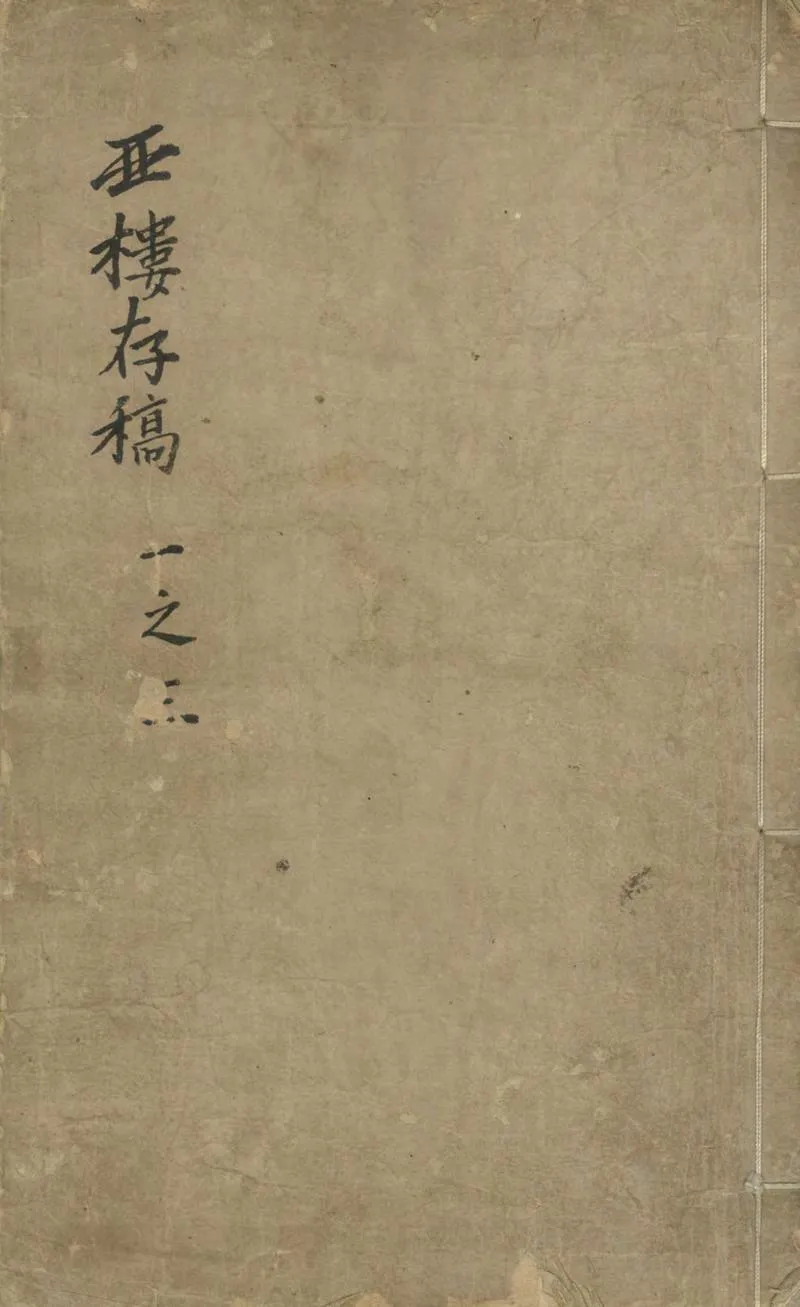 亚樓存稿
一之三